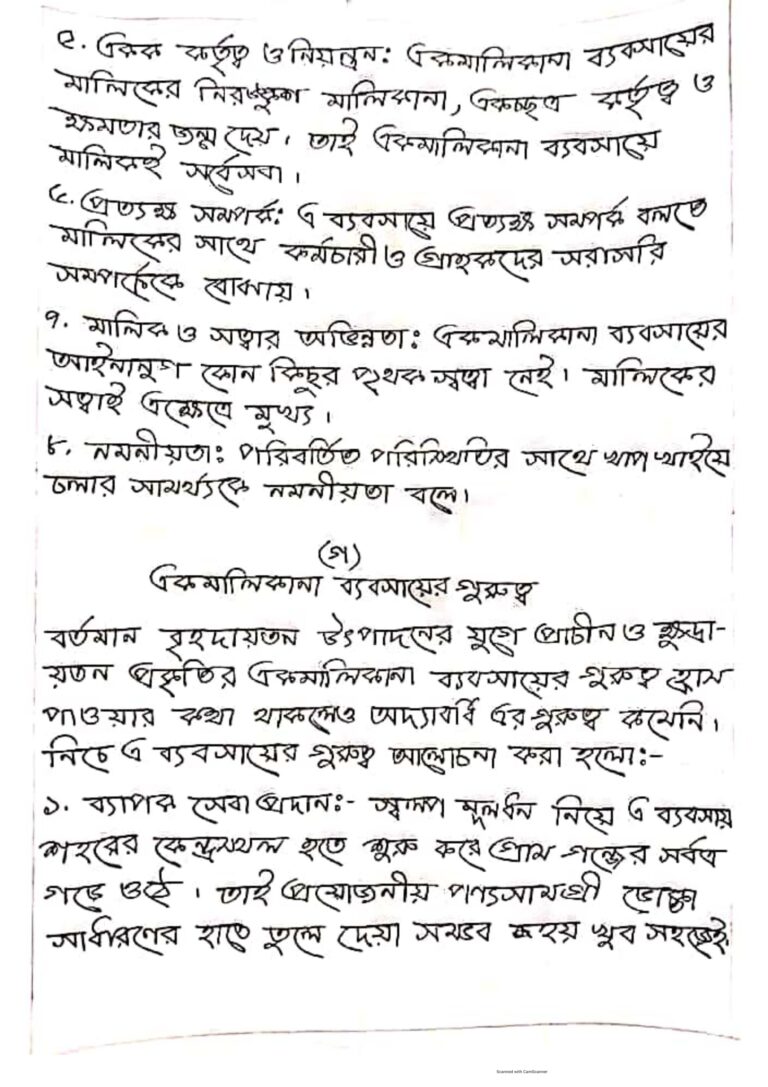 ৫. একক কর্তৃত্ব ও নিয়ন্ত্রন: একমালিকানা ব্যবসায়ের
মালিকের নিরঙ্কুশ মালিকানা, একচ্ছত্র কর্তৃত্ব ও
ক্ষমতার জন্ম দেয়। তাই একমালিকানা ব্যবসায়ে
মালিকই সর্বেসবা।
৬. প্রত্যক্ষ সম্পর্ক: এ ব্যবসায়ে প্রত্যক্ষ সম্পর্ক বলতে
মালিকের সাথে কর্মচারী ও গ্রাহকদের সরাসরি
সম্পর্ককে বোঝায়।
৭. মালিক ও সত্বার অভিন্নতা: একমালিকানা ব্যবসায়ের
আইনানুগ কোন কিছুর পৃথক স্বত্বা নেই। মালিকের
সত্বাই এক্ষেত্রে মুখ্য।
৮. নমনীয়তা: পরিবর্তিত পরিস্থিতির সাথে খাপ খাইয়ে
চলার সামর্থ্যকে নমনীয়তা বলে।
(গ)
একমালিকানা ব্যবসায়ের গুরুত্ব
বর্তমান বৃহদায়তন উৎপাদনের যুগে প্রাচীন ও ক্ষুদ্রা-
য়তন প্রকৃতির একমালিকানা ব্যবসায়ের গুরুত্ব হ্রাস
পাওয়ার কথা থাকলেও অদ্যাবধি এর গুরুত্ব কমেনি।
নিচে এ ব্যবসায়ের গুরুত্ব আলোচনা করা হলো:-
১. ব্যাপক সেবা প্রদান:- স্বল্প মূলধন নিয়ে এ ব্যবসায়
শহরের কেন্দ্রস্থল হতে শুরু করে গ্রাম গঞ্জের সর্বত্র
গড়ে ওঠে। তাই প্রয়োজনীয় পণ্যসামগ্রী ভোক্তা
সাধারণের হাতে তুলে দেয়া সম্ভব হয় খুব সহজেই
Scanned with CamScanner